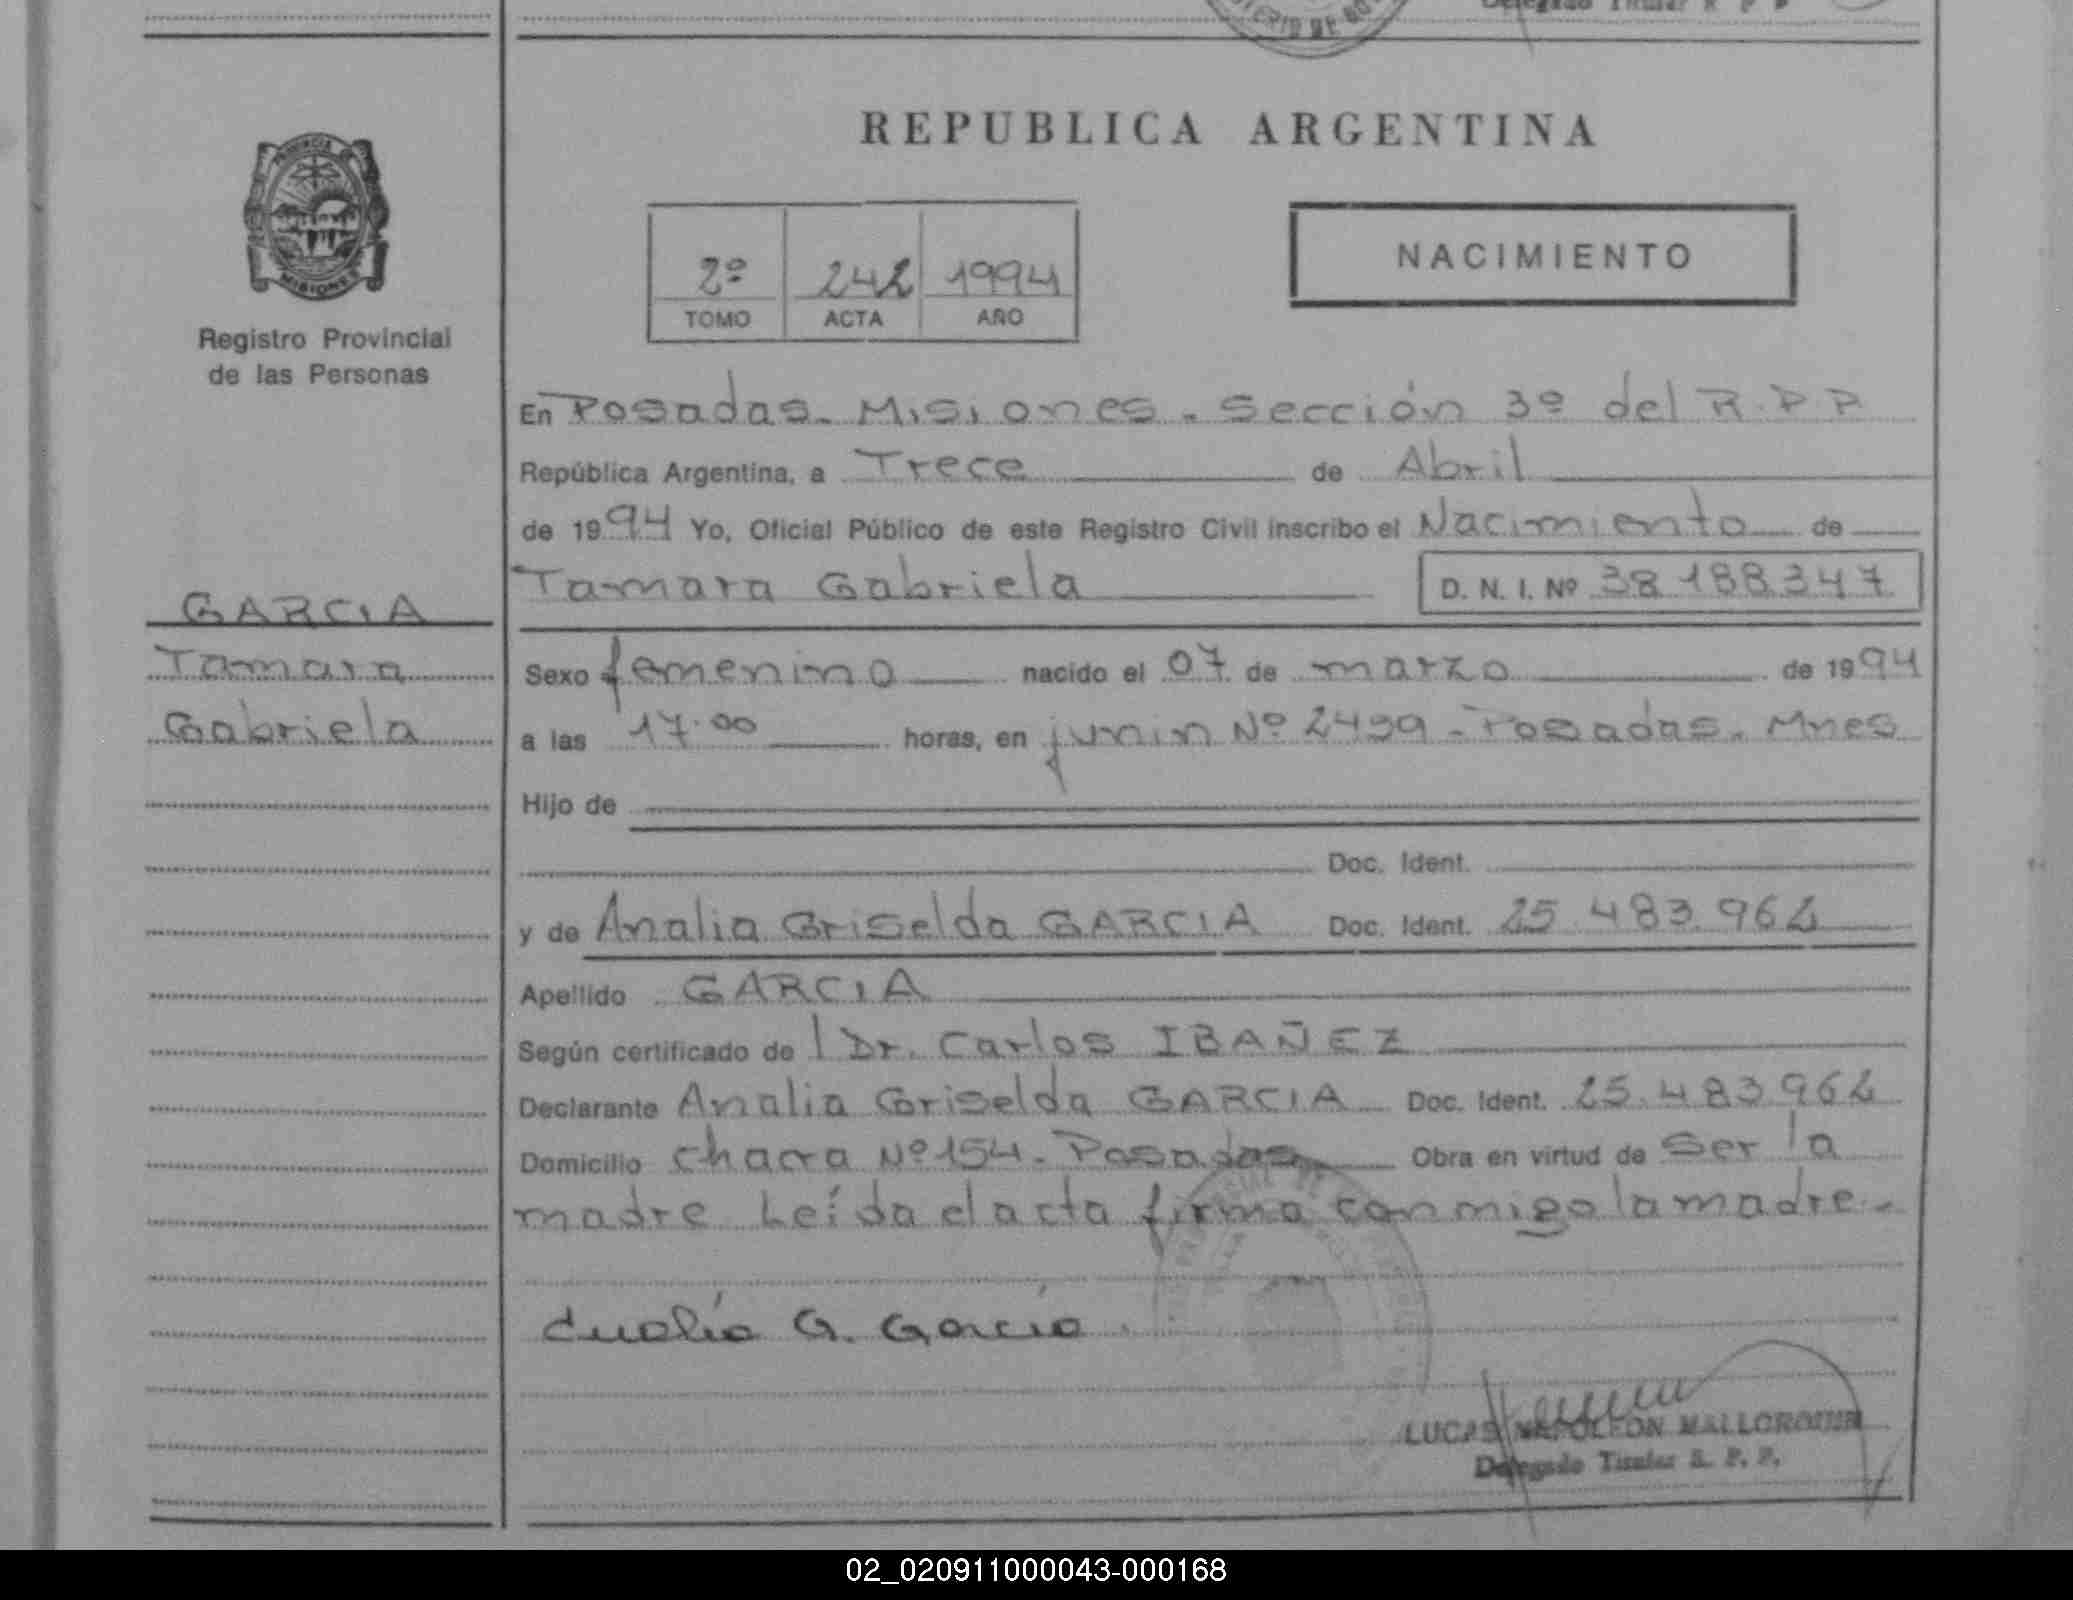 REPUBLICA ARGENTINA
PROVINCIA DE
MISIONES
Registro Provincial
de las Personas
2º 242 1994
TOMO ACTA AÑO
NACIMIENTO
En Posadas. Misiones. Sección 3º del R.P.P
República Argentina, a Trece de Abril
de 1994 Yo, Oficial Público de este Registro Civil inscribo el Nacimiento de
Tamara Gabriela D. N. I. Nº 38.188.347
GARCIA
Tamara
Gabriela
Sexo femenino nacido el 07 de marzo de 1994
a las 17.00 horas, en junin Nº 2499 - Posadas. Mnes
Hijo de
Doc. Ident.
y de Analia Griselda GARCIA Doc. Ident. 25.483.962
Apellido GARCIA
Según certificado de l Dr. Carlos IBAÑEZ
Declarante Analia Griselda GARCIA Doc. Ident. 25.483.962
Domicilio chacra Nº 154. Posadas Obra en virtud de ser la
madre Leída el acta firma conmigo la madre.-
G. Garcia.
LUCAS NAPOLEON MALLORQUIN
Delegado Titular R. P. P.
02_020911000043-000168